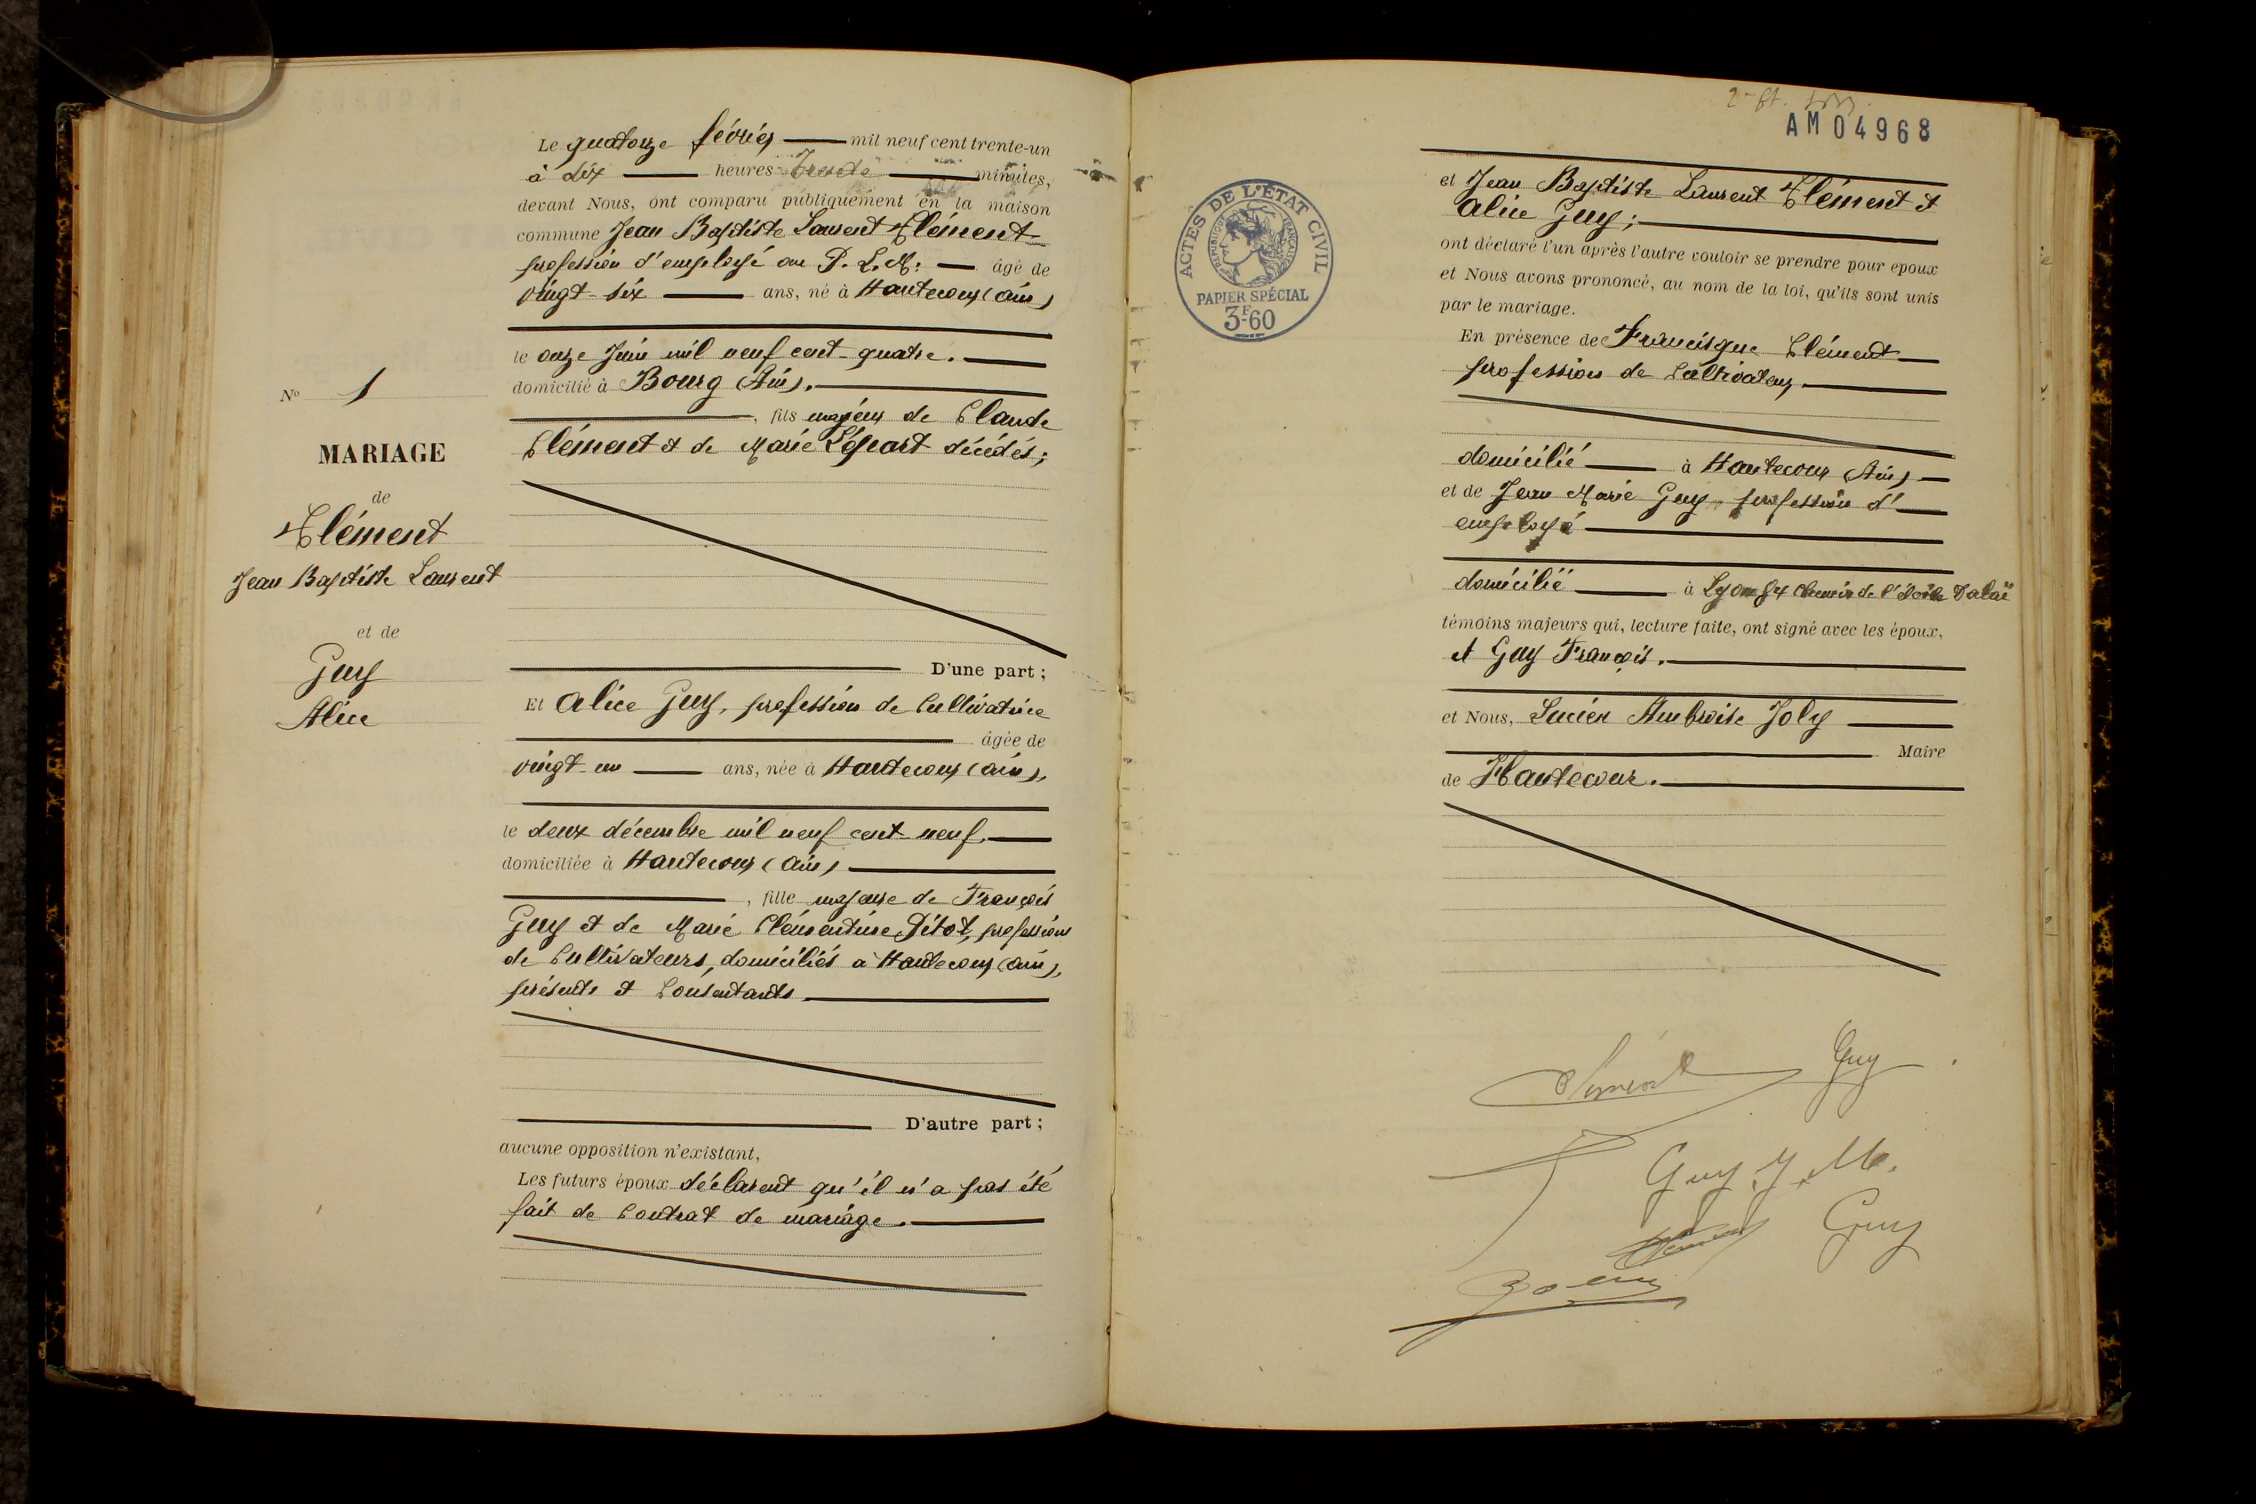 Le quatorze février mil neuf cent trente-un
à dix heures Trente minutes,
devant Nous, ont comparu publiquement en la maison
commune Jean Baptiste Laurent Clément
profession d'employé au P. L. M. âgé de
vingt-six ans, né à Hautecour (Ain)
le onze Juin mil neuf cent-quatre.
domicilié à Bourg (Ain).
, fils majeur de Claude
Clément et de Marie Lépart décédés;
D'une part;
Et Alice Guy, profession de Cultivatrice
âgée de
vingt-un ans, née à Hautecour (Ain),
le deux décembre mil neuf cent-neuf,
domiciliée à Hautecour (Ain)
, fille majeure de François
Guy et de Marie Clémentine Pitot, profession
de Cultivateurs, domiciliés à Hautecour (Ain),
présents et Consentants
D'autre part;
aucune opposition n'existant,
Les futurs époux déclarent qu'il n'a pas été
fait de Contrat de mariage.
No 1
MARIAGE
de
Clément
Jean Baptiste Laurent
et de
Guy
Alice
AM04968
ACTES DE L'ÉTAT CIVIL
RÉPUBLIQUE FRANÇAISE
PAPIER SPÉCIAL
3F60
et Jean Baptiste Laurent Clément et
Alice Guy;
ont déclaré l'un après l'autre vouloir se prendre pour époux
et Nous avons prononcé, au nom de la loi, qu'ils sont unis
par le mariage.
En présence de Francisque Clément
profession de Cultivateur,
domicilié à Hautecour (Ain)
et de Jean Marie Guy, profession d'
employé
domicilié à Lyon 84 Chemin de l'étoile d'alaï
témoins majeurs qui, lecture faite, ont signé avec les époux,
et Guy François.
et Nous, Lucien Ambroise Joly
Maire
de Hautecour.
Clément Guy
Guy J. M.
Clément Guy